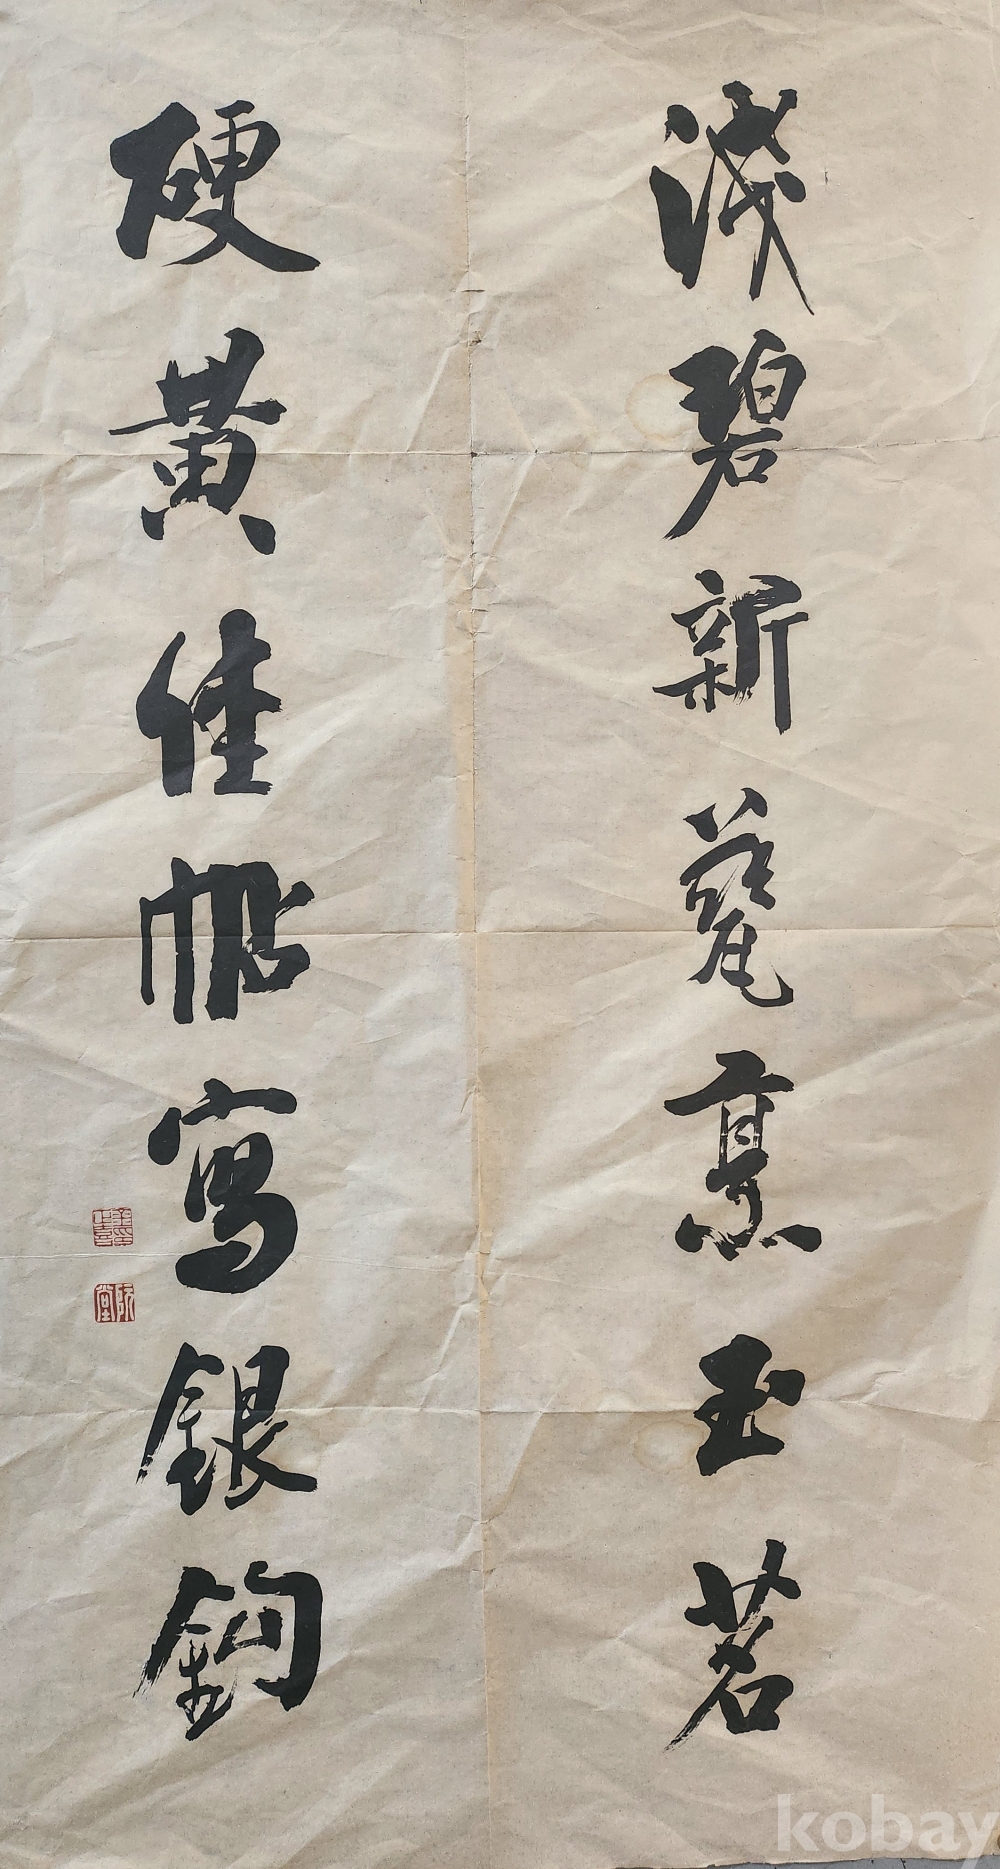 淺碧新瓷烹玉茗
硬黃佳帖寫銀鉤
kobay